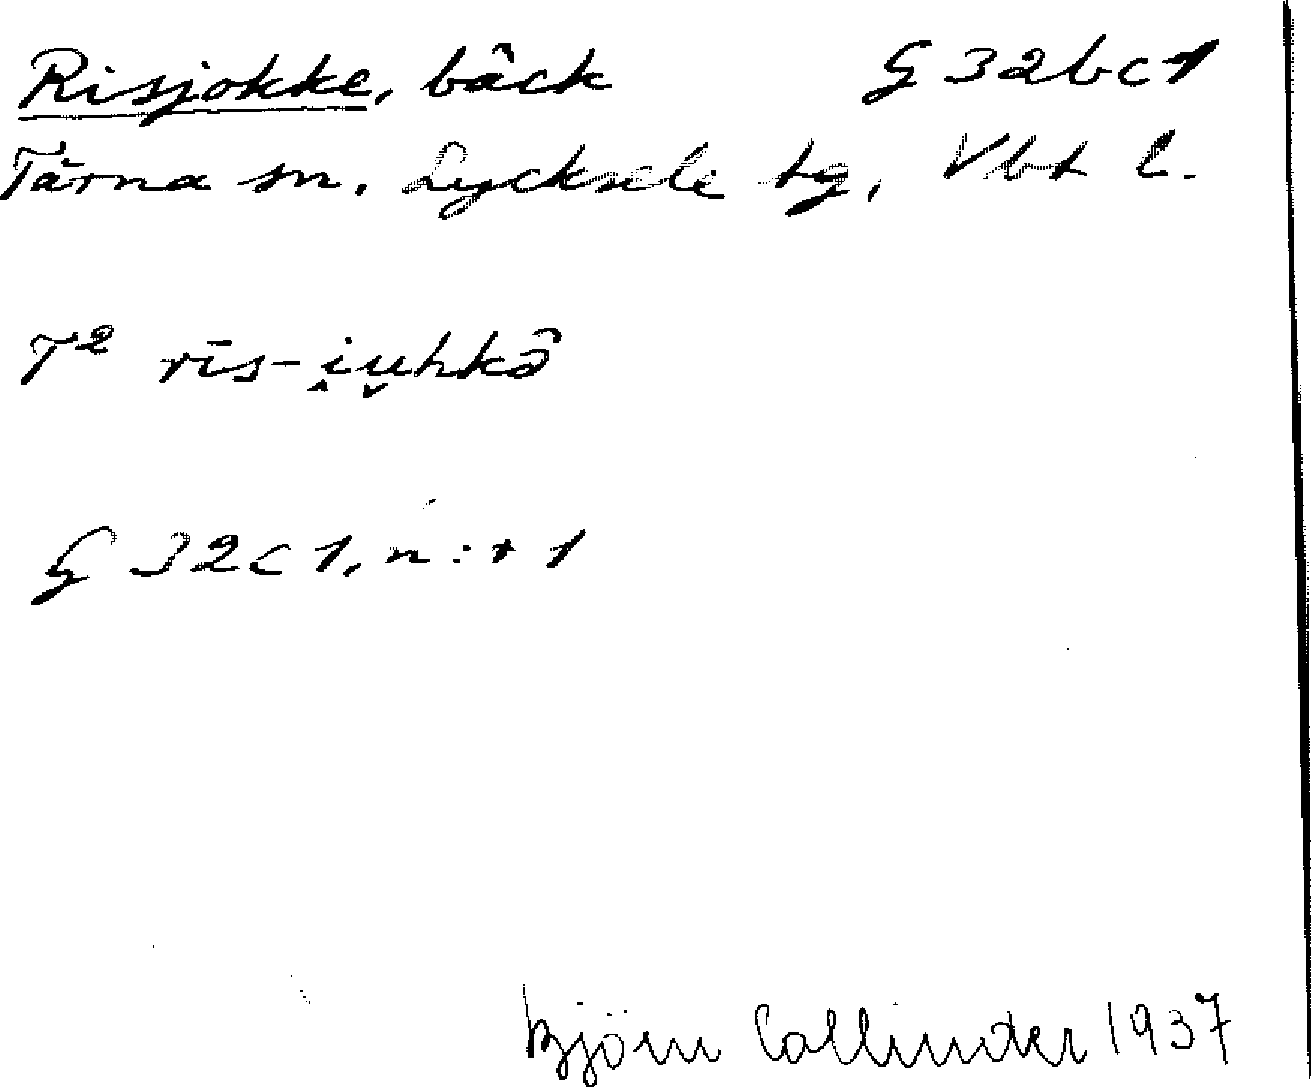 Risjokke, bäck G 32bc1
Tärna sn. Lycksele tg, Vbt l.
T² rīs-i̭u̬hkə̂
G 32c1, n:r 1
Björn Collinder 1937